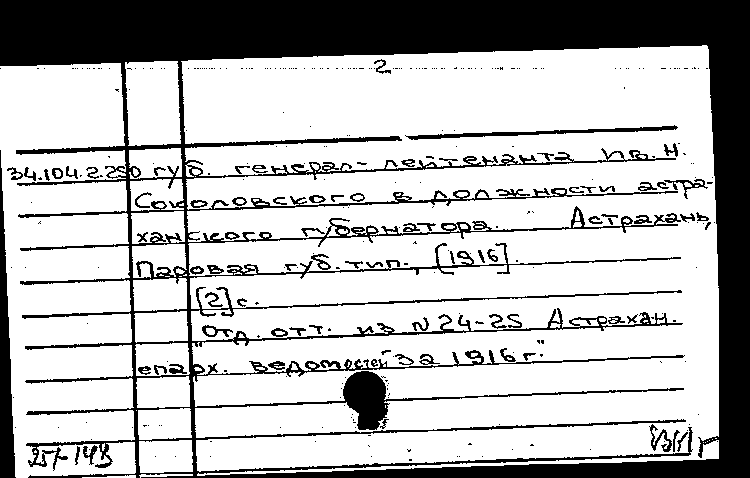 2
34.104.2.250 губ. генерал-лейтенанта Ив. Н.
Соколовского в должности астра-
ханского губернатора. Астрахань,
Паровая губ. тип., [1916].
[2] с.
"Отд. отт. из N 24-25 Астрахан.
епарх. ведомостей за 1916 г."